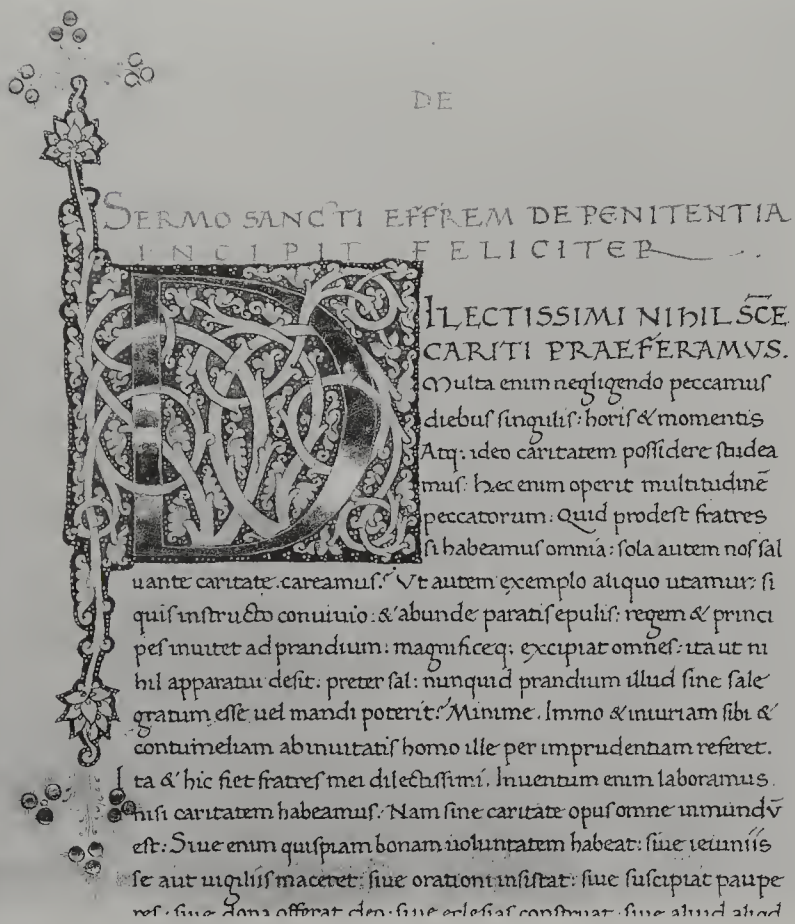 DE
SERMO SANCTI EFFREM DE PENITENTIA
INCIPIT FELICITER
DILECTISSIMI NIhIL SC̅E
CARITI PRAEFERAMVS.
Multa enim negligendo peccamuſ
diebuſ ſinguliſ: horiſ & momentis
Atq: ideo caritatem poſſidere ſtudea
muſ: hec enim operit multitudinē
peccatorum: Quid prodeſt fratres
ſi habeamuſ omnia: ſola autem noſ ſal
uante caritate careamuſ? Vt autem exemplo aliquo utamur: ſi
quiſ inſtructo conuiuio: & abunde paratiſ epuliſ: regem & princi
peſ inuitet ad prandium: magnificeq: excipiat omneſ: ita ut ni
hil apparatui deſit: preter ſal: nunquid prandium illud ſine ſale
gratum eſſe uel mandi poterit? Minime. Immo & iniuriam ſibi &
contumeliam ab inuitatiſ homo ille per imprudentiam referet.
Ita & hic fiet fratreſ mei dilectiſſimi. Inuentum enim laboramus
niſi caritatem habeamuſ: Nam ſine caritate opuſ omne inmundv̄
eſt: Siue enim quiſpiam bonam uoluntatem habeat: ſiue ieiuniis
ſe aut uigiliiſ maceret: ſiue orationi inſiſtat: ſiue ſuſcipiat paupe
reſ: ſiue dona offerat deo: ſiue ecleſiaſ conſtruat: ſiue aliud aliqd